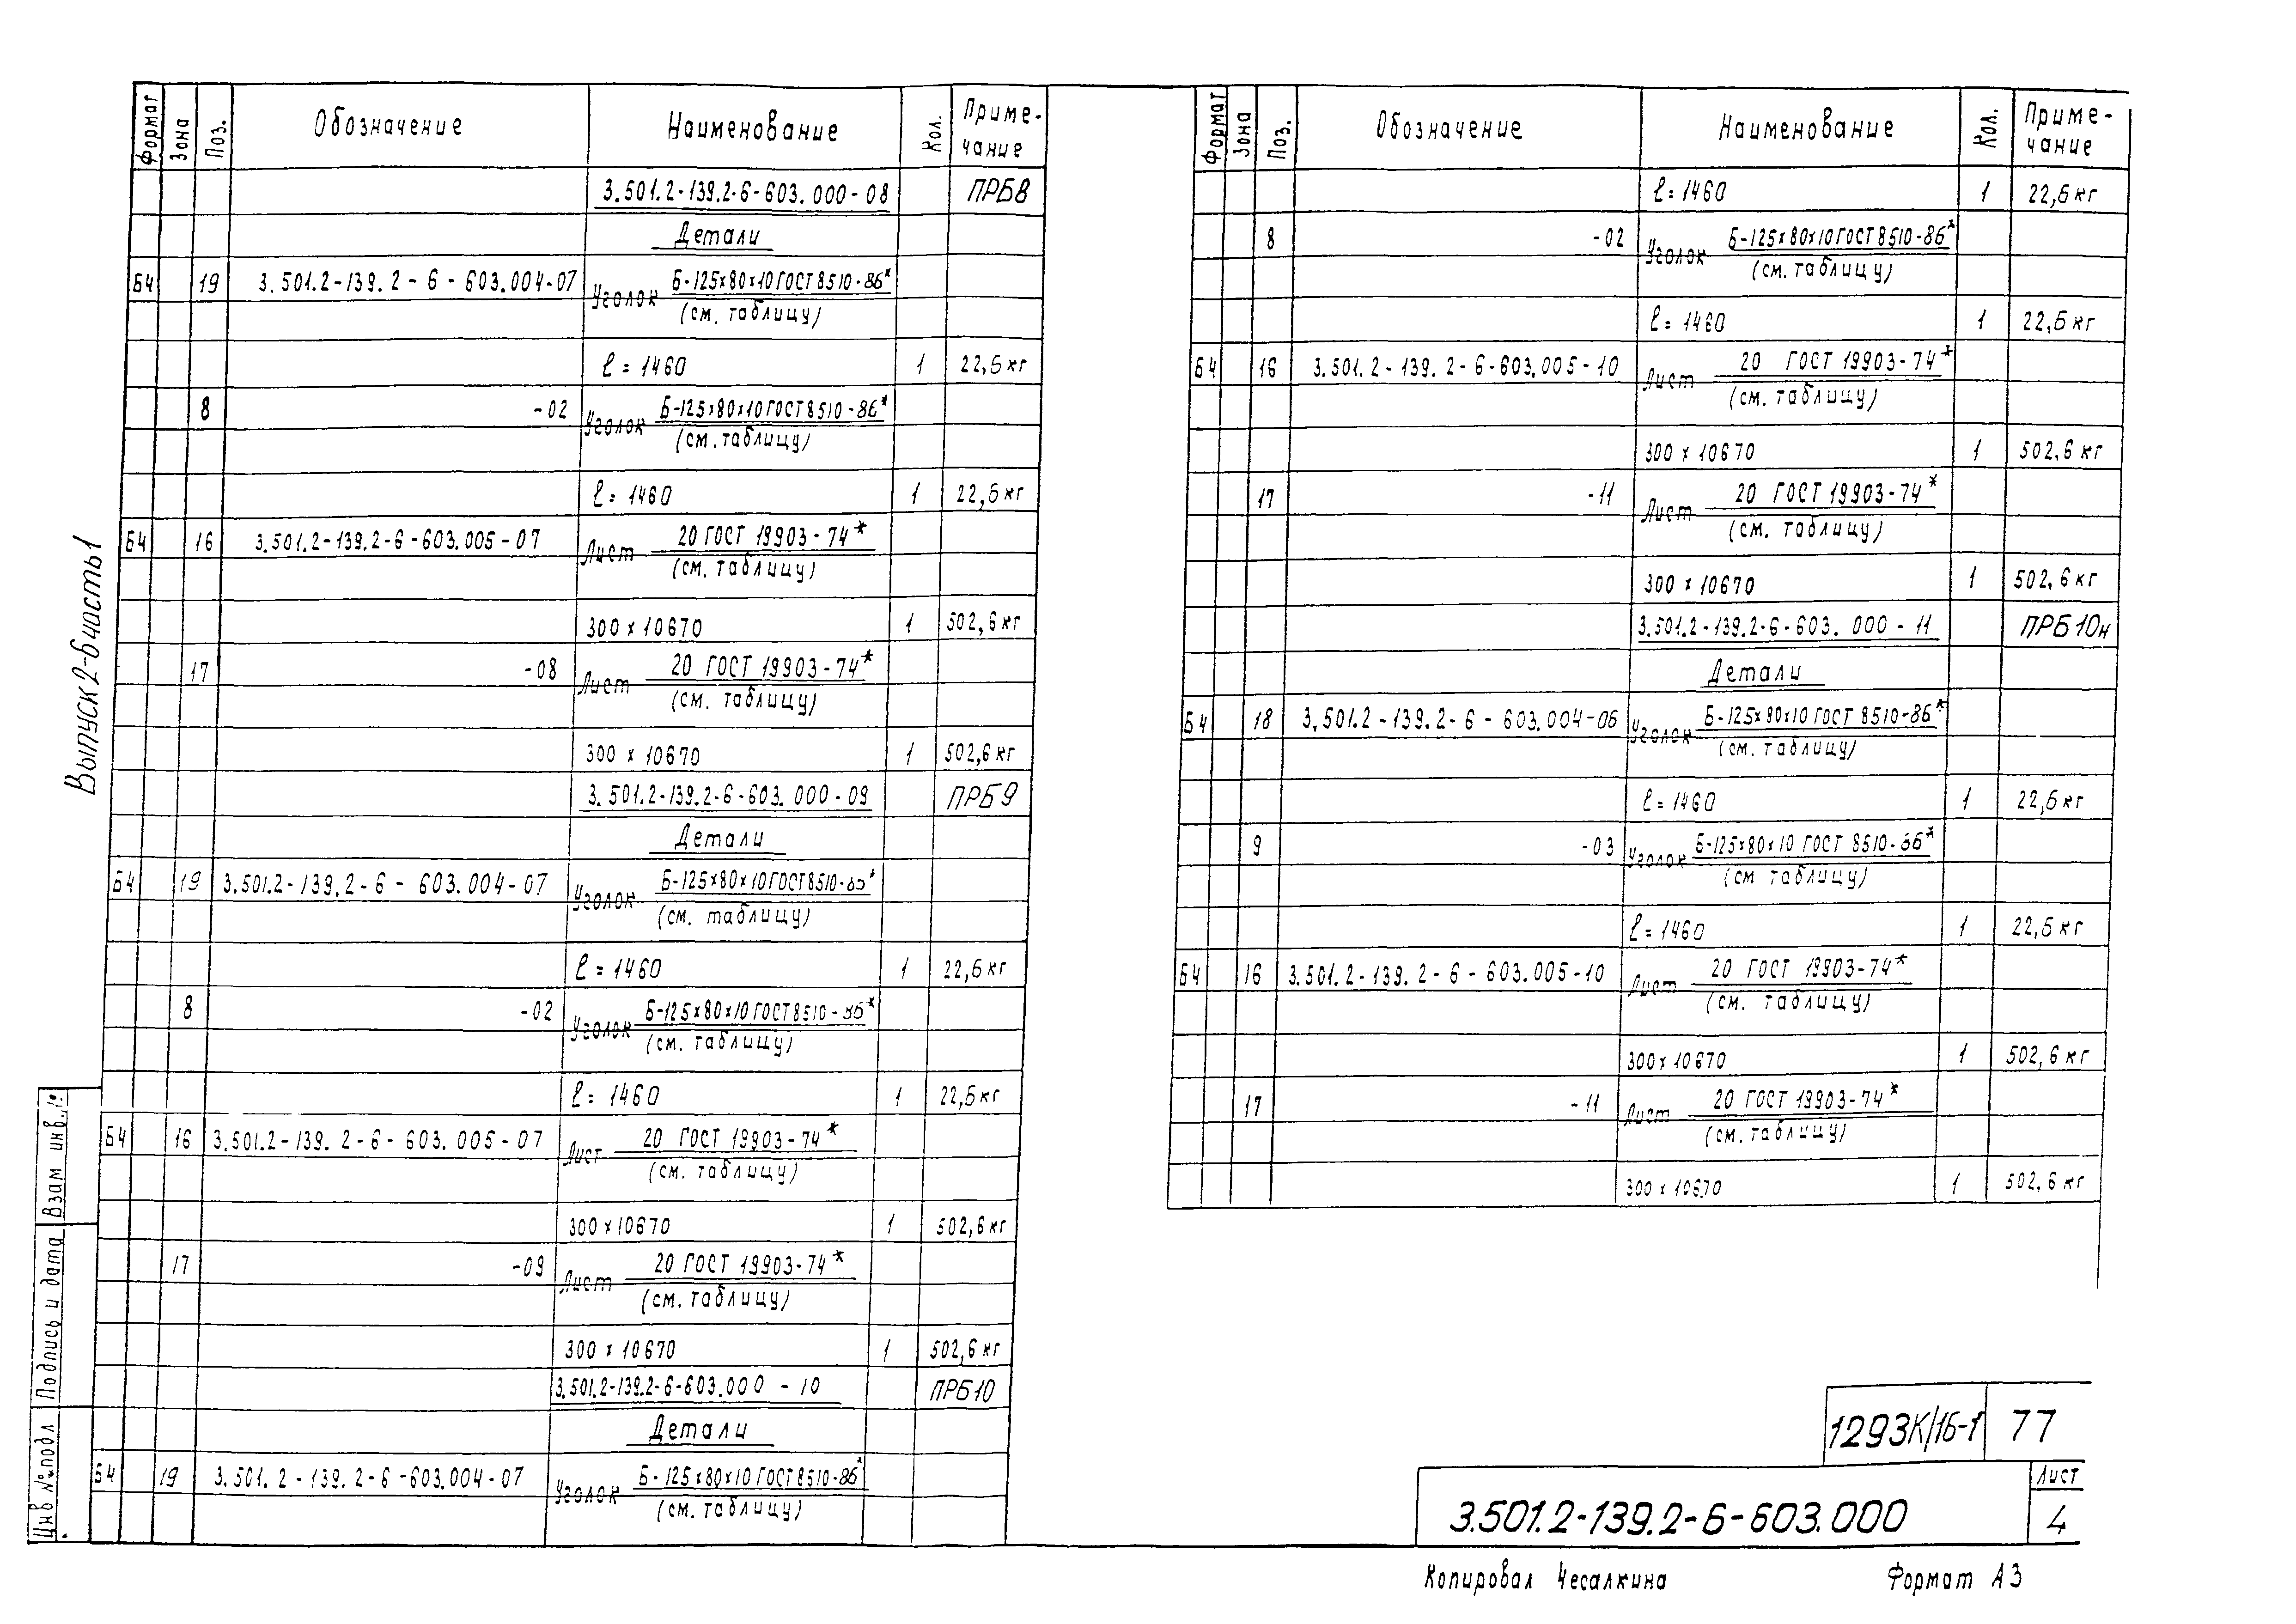 Выпуск 2-6 часть 1
Формат Зона Поз. Обозначение Наименование Кол. Приме-
чание
3.501.2-139.2-6-603.000-08 ПРБ8
Детали
Б4 19 3.501.2-139.2-6-603.004-07 Уголок Б-125х80х10 ГОСТ 8510-86*
(см. таблицу)
ℓ=1460 1 22,6 кг
8 -02 Уголок Б-125х80х10 ГОСТ 8510-86*
(см. таблицу)
ℓ=1460 1 22,6 кг
Б4 16 3.501.2-139.2-6-603.005-07 Лист 20 ГОСТ 19903-74*
(см. таблицу)
300х10670 1 502,6 кг
17 -08 Лист 20 ГОСТ 19903-74*
(см. таблицу)
300х10670 1 502,6 кг
3.501.2-139.2-6-603.000-09 ПРБ9
Детали
Б4 19 3.501.2-139.2-6-603.004-07 Уголок Б-125х80х10 ГОСТ 8510-86*
(см. таблицу)
ℓ=1460 1 22,6 кг
8 -02 Уголок Б-125х80х10 ГОСТ 8510-86*
(см. таблицу)
ℓ=1460 1 22,6 кг
Б4 16 3.501.2-139.2-6-603.005-07 Лист 20 ГОСТ 19903-74*
(см. таблицу)
300х10670 1 502,6 кг
17 -09 Лист 20 ГОСТ 19903-74*
(см. таблицу)
300х10670 1 502,6 кг
3.501.2-139.2-6-603.000-10 ПРБ10
Детали
Б4 19 3.501.2-139.2-6-603.004-07 Уголок Б-125х80х10 ГОСТ 8510-86*
(см. таблицу)
Формат Зона Поз. Обозначение Наименование Кол. Приме-
чание
ℓ=1460 1 22,6 кг
8 -02 Уголок Б-125х80х10 ГОСТ 8510-86*
(см. таблицу)
ℓ=1460 1 22,6 кг
Б4 16 3.501.2-139.2-6-603.005-10 Лист 20 ГОСТ 19903-74*
(см. таблицу)
300х10670 1 502,6 кг
17 -11 Лист 20 ГОСТ 19903-74*
(см. таблицу)
300х10670 1 502,6 кг
3.501.2-139.2-6-603.000-11 ПРБ10н
Детали
Б4 18 3.501.2-139.2-6-603.004-06 Уголок Б-125х80х10 ГОСТ 8510-86*
(см. таблицу)
ℓ=1460 1 22,6 кг
9 -03 Уголок Б-125х80х10 ГОСТ 8510-86*
(см таблицу)
ℓ=1460 1 22,6 кг
Б4 16 3.501.2-139.2-6-603.005-10 Лист 20 ГОСТ 19903-74*
(см. таблицу)
300х10670 1 502,6 кг
17 -11 Лист 20 ГОСТ 19903-74*
(см. таблицу)
300х10670 1 502,6 кг
Взам инв.
Подпись и дата
Инв № подл
1293К/16-1 77
3.501.2-139.2-6-603.000
Лист
4
Копировал Чесалкина Формат А3